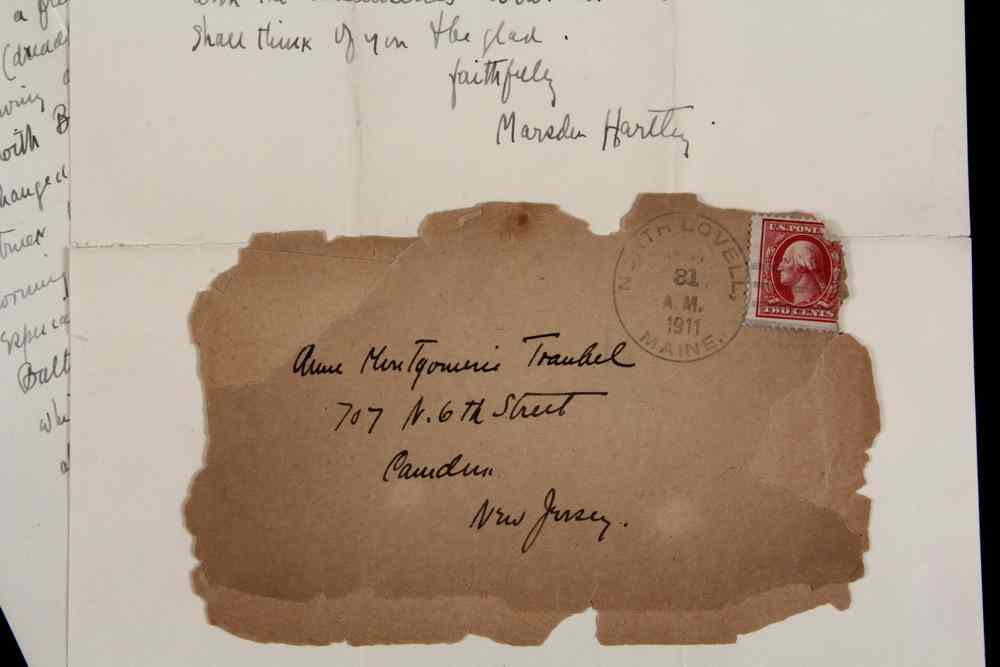 a
(dread
with B
hanged
Balt
whi
Shall think of you & be glad.
faithfully
Marsden Hartley.
NORTH LOVELL,
31
A.M.
1911
MAINE.
U.S. POSTA
TWO CENTS
Anne Montgomerie Traubel
707 N. 6th Street
Camden
New Jersey.